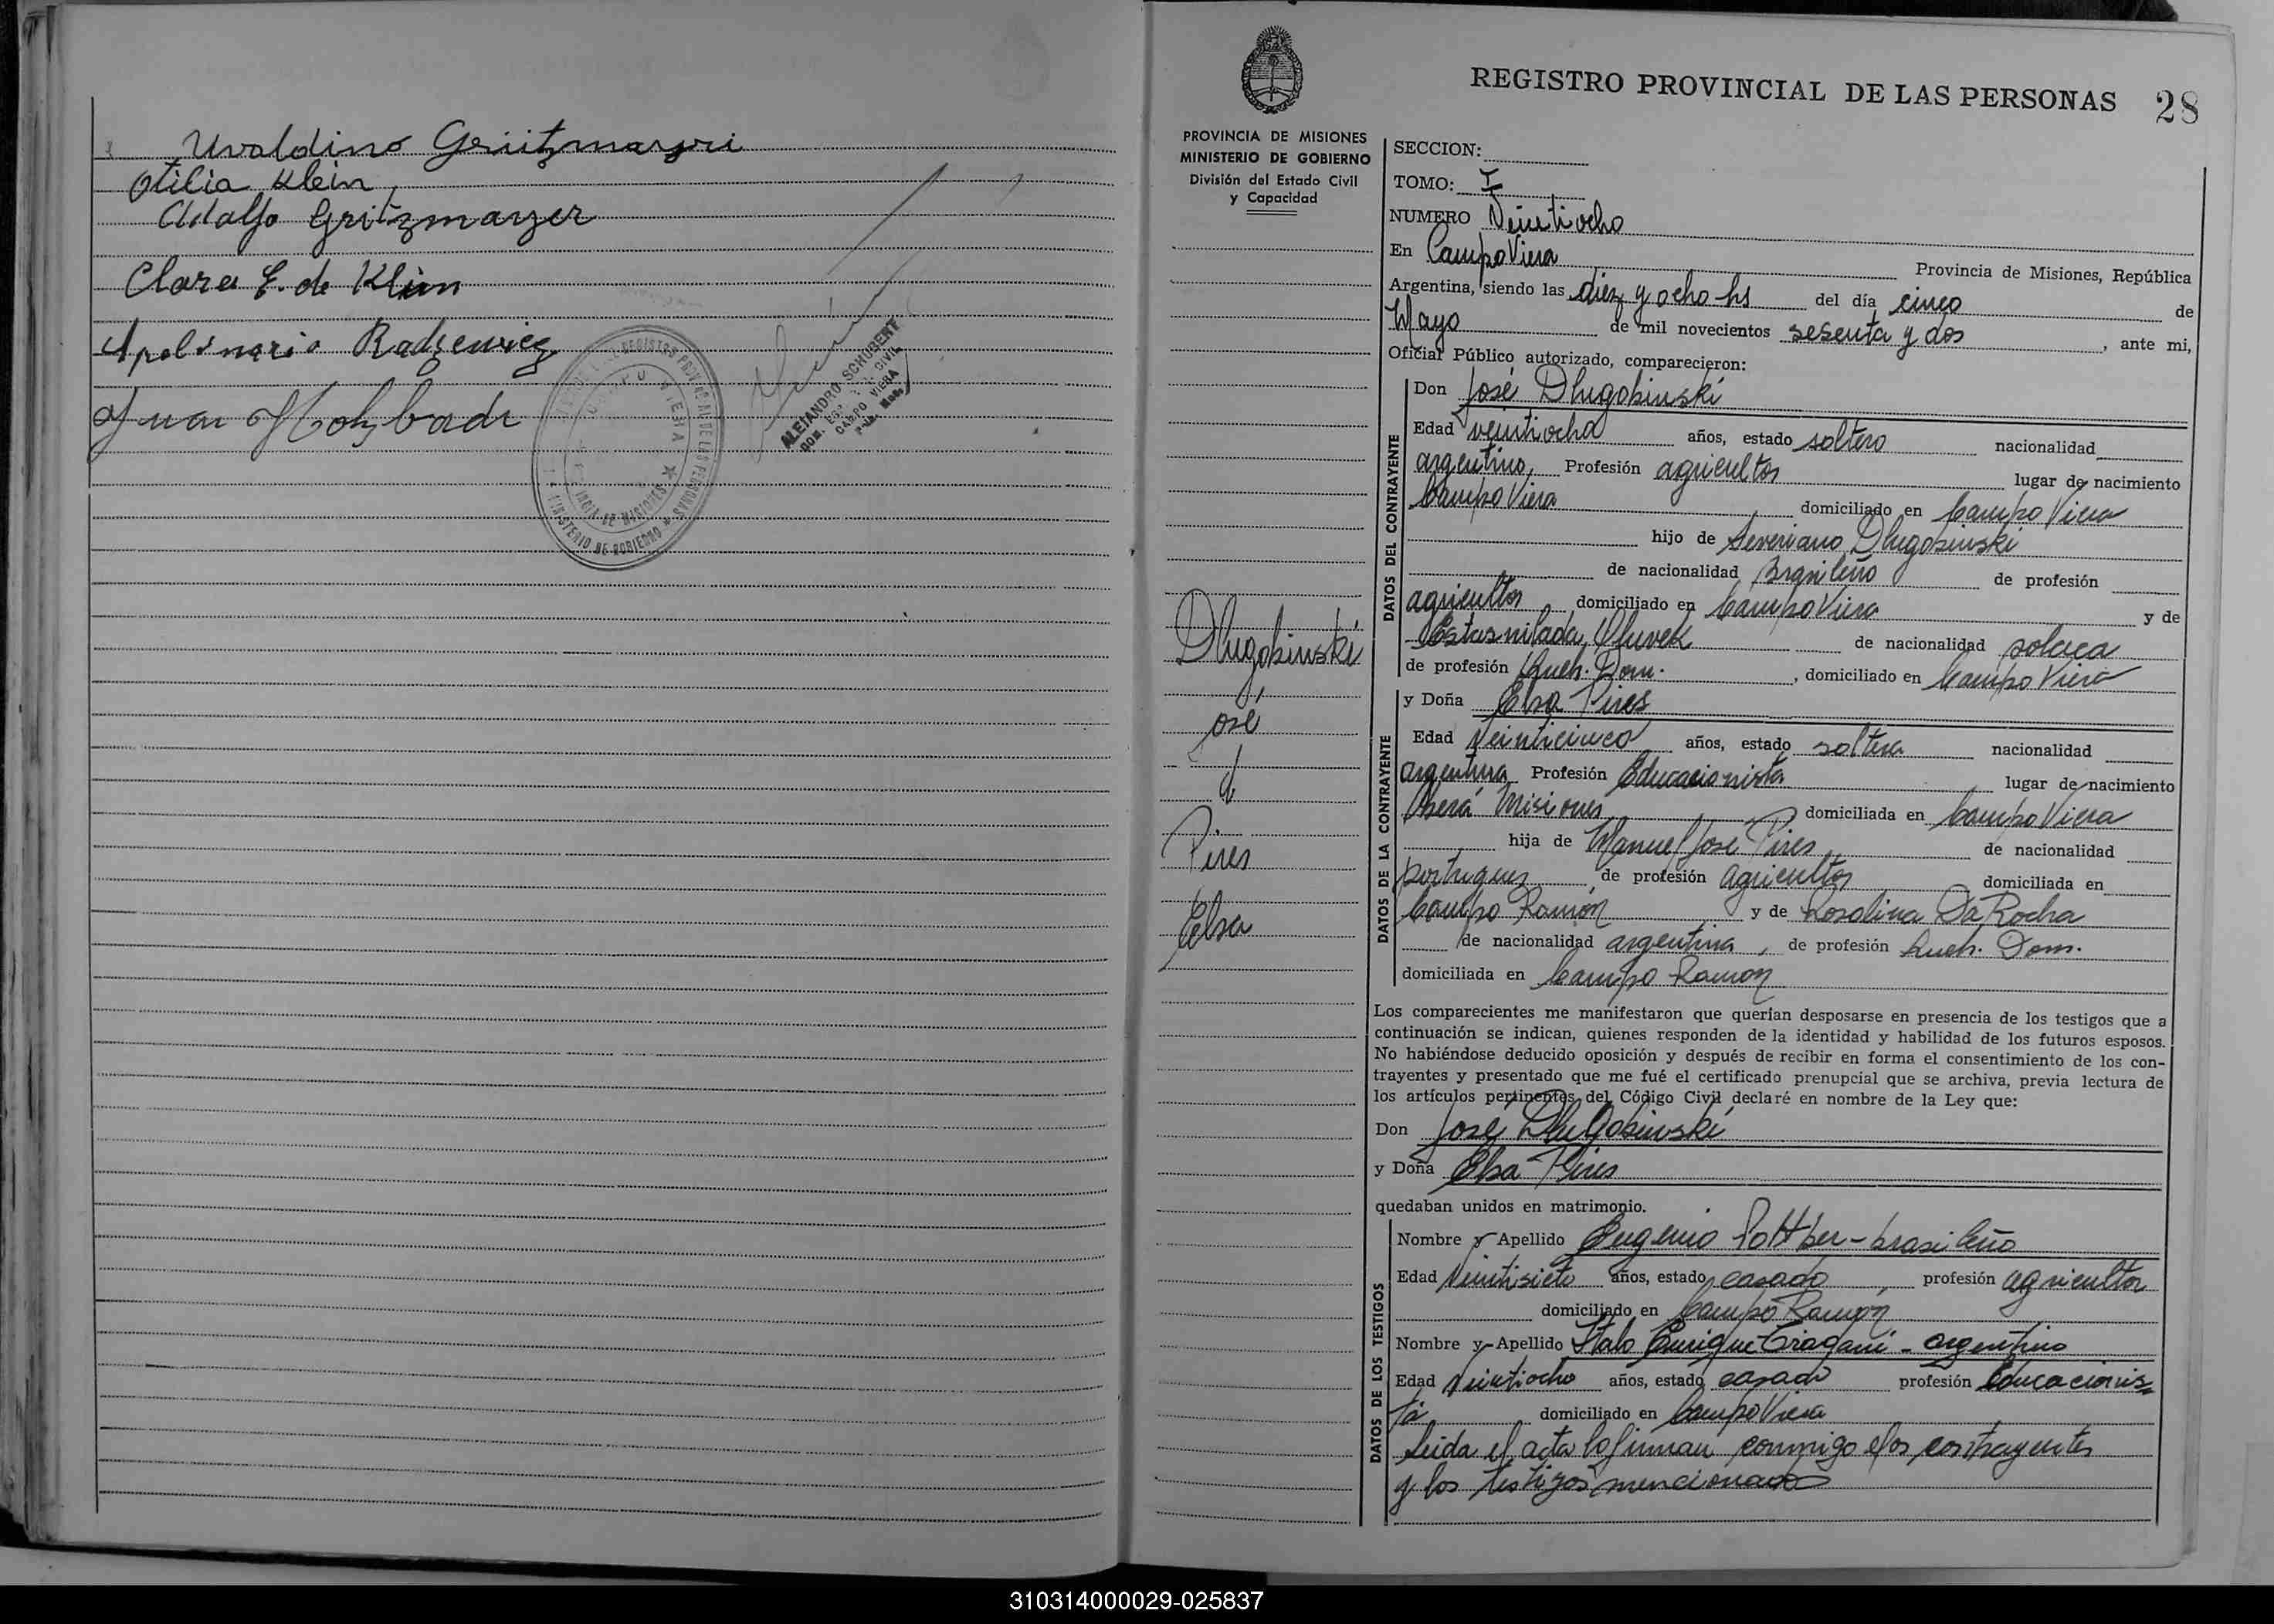 Uvaldino Grützmazri
Otilia Klein
Adolfo Gritzmarzer
Clara E. de Klein
Apolinario Radzewicz
Juan Holzbach
ALEJANDRO SCHUBERT
CAMPO VIERA
MINISTERIO DE GOBIERNO
REGISTRO PROVINCIAL DE LAS PERSONAS 28
PROVINCIA DE MISIONES
MINISTERIO DE GOBIERNO
División del Estado Civil
y Capacidad
SECCION:
TOMO: I
NUMERO Veintiocho
En Campo Viera Provincia de Misiones, República
Argentina, siendo las diez y ocho hs del día cinco de
Mayo de mil novecientos sesenta y dos, ante mi,
Oficial Público autorizado, comparecieron:
DATOS DEL CONTRAYENTE
Don José Dlugobinski
Edad veintiocho años, estado soltero nacionalidad
argentino, Profesión agricultor lugar de nacimiento
Campo Viera domiciliado en Campo Viera
hijo de Severiano Dlugobinski
de nacionalidad Brasileño de profesión
agricultor domiciliado en Campo Viera y de
Estasnilada de nacionalidad polaca
de profesión Queh. Dom. , domiciliado en Campo Viera
DATOS DE LA CONTRAYENTE
y Doña Elsa Pires
Edad Veinticinco años, estado soltera nacionalidad
argentina Profesión Educacionista lugar de nacimiento
Oberá Misiones domiciliada en Campo Viera
hija de Manuel José Pires de nacionalidad
portugues de profesión agricultor domiciliada en
Campo Ramón y de Rosalina Da Rocha
de nacionalidad argentina, de profesión Queh. Dom.
domiciliada en Campo Ramon
Dlugobinski
José
d
Pires
Elsa
Los comparecientes me manifestaron que querían desposarse en presencia de los testigos que a
continuación se indican, quienes responden de la identidad y habilidad de los futuros esposos.
No habiéndose deducido oposición y después de recibir en forma el consentimiento de los con-
trayentes y presentado que me fué el certificado prenupcial que se archiva, previa lectura de
los artículos pertinentes del Código Civil declaré en nombre de la Ley que:
Don José Dlugobinski
y Doña Elsa Pires
quedaban unidos en matrimonio.
DATOS DE LOS TESTIGOS
Nombre y Apellido Eugenio - brasileño
Edad Veintisiete años, estado casado profesión agricultor
domiciliado en Campo Ramón
Nombre y Apellido Italo Enrique - argentino
Edad Veintiocho años, estado casado profesión Educacionis-
ta domiciliado en Campo Viera
Leida el acta la firman conmigo los contrayentes
y los testigos mencionados
310314000029-025837